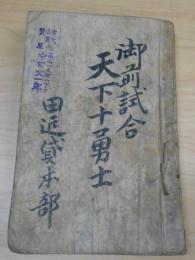 御前試合
天下十勇士
田辺貸本部